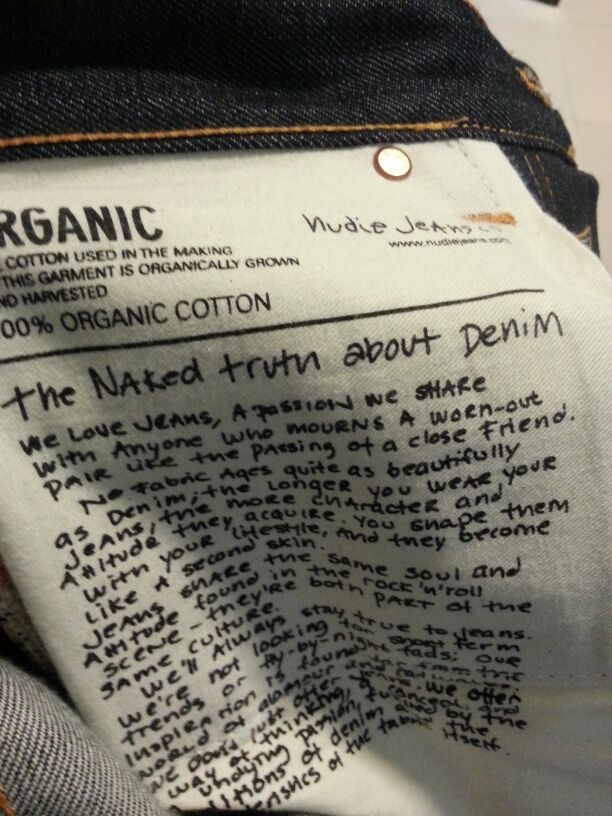 RGANIC
nudie Jeans co
www.nudiejeans.com
COTTON USED IN THE MAKING
THIS GARMENT IS ORGANICALLY GROWN
ND HARVESTED
00% ORGANIC COTTON
the Naked truth about Denim
We Love Jeans, A passion we share
with Anyone who mourns A worn-out
pair like the passing of a close friend.
No fabric Ages quite as beautifully
as Denim; the longer you wear your
Jeans, the more character and
Attitude they acquire. You shape them
with your lifestyle, And they become
like A second skin.
Jeans share the same soul and
Attitude found in the rock'n'roll
scene - they're both part of the
same culture.
We'll Always stay true to jeans.
We're not looking for short term
trends or fly-by-night fads; our
inspiration is found far from the
world of glamour and
we don't just offer denim. we offer
way of thinking, a concept and
undying passion, fueled by the
itions of denim and the
ristics of the fabric itself.